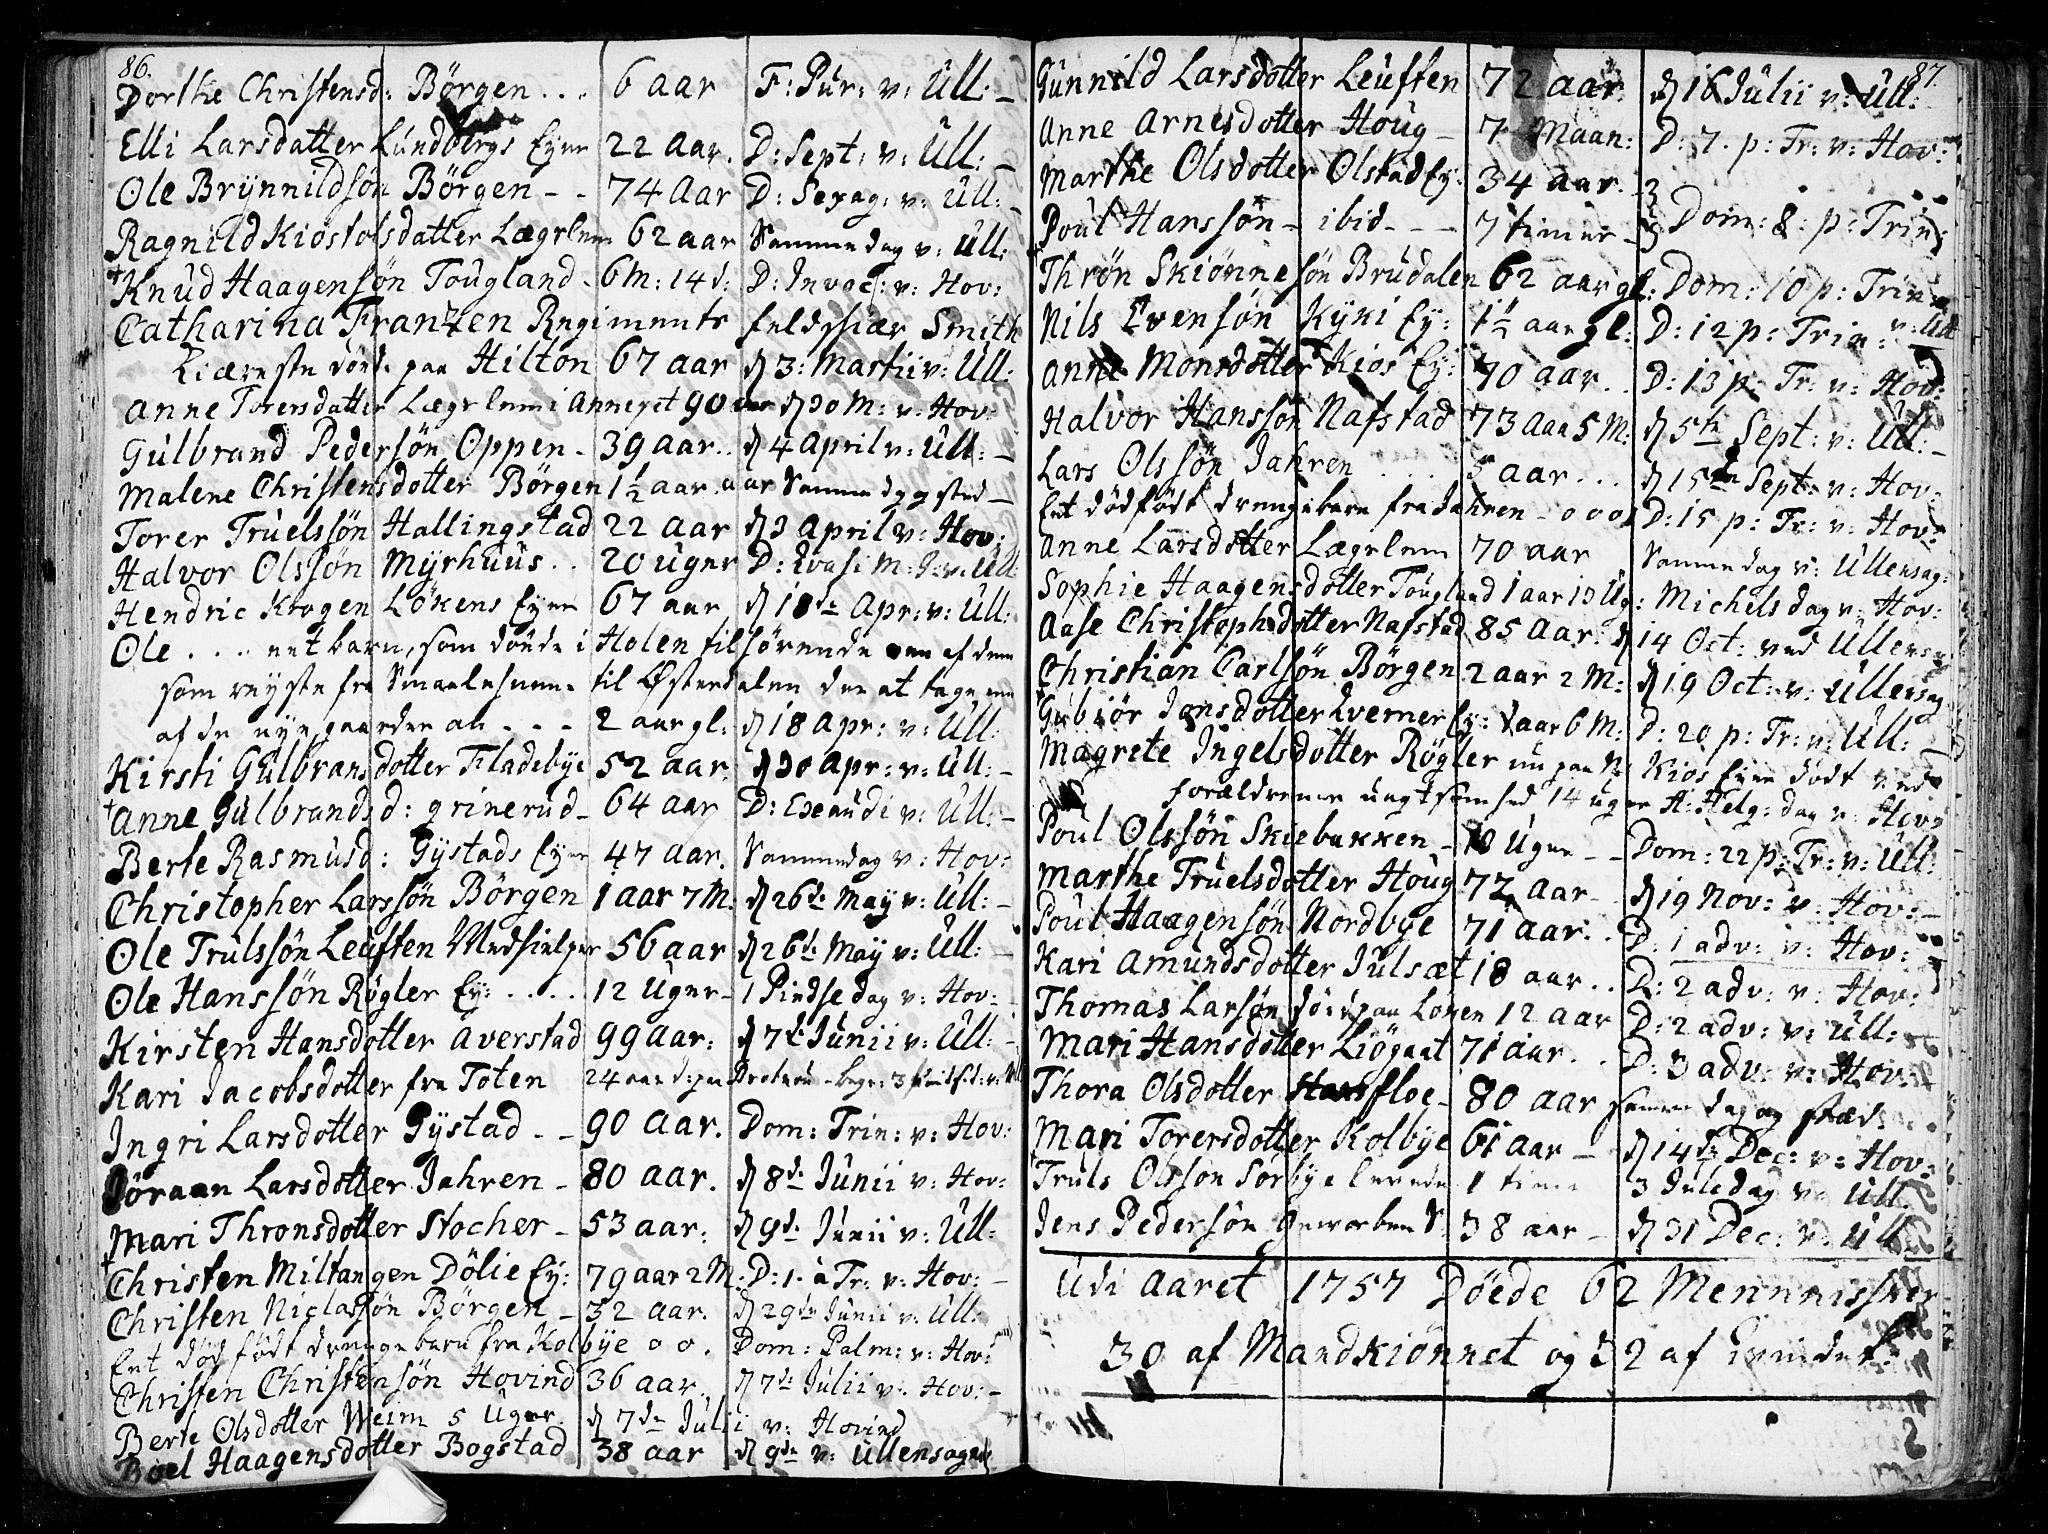 86.
Dorthe Christensd: Börgen . . . 6 aar F: Pur: v: Ull: –
Elli Larsdatter Lundbergs Eyer 22 Aar. D: Sept: v: Ull: –
Ole Brynnildsön Börgen – – 74 Aar D: Sexag: v: Ull: –
Ragnild Kiöstolsdatter Lægrlem 62 aar Samme dag v: Ull:
† Knud Haagensön Tougland – 6 M: 14 d: D: Invoc: v: Hov:
Catharina Franzen Regiments feldskiær Smith
Kiæreste döde paa Hilton 67 aar d 3: Martii v: Ull:
Anne Torersdatter Lægrlem i Anneret 90 aar d 30 M: v: Hov:
Gulbrand Pedersön Oppen – 39 aar . . d 4 April v: Ull: –
Malene Christensdotter Börgen 1½ aar Samme dag og sted –
Torer Truelssön Hallingstad 22 aar d 3 April v: Hov:
Halvor Olssön Myrhuus . . 20 uger D: Qvasi M: G: v: Ull
Hendric Krogen Lökens Eyer 67 aar d 18de Apr: v: Ull:
Ole . . . . eet barn, som döede i Holen tilhörende een af dem
som reyste fra Smaalehnene til Østerdalen der at tage een
af de nye gaarder an – – – 2 aar gl: d 18 Apr: v: Ull:
Kirsti Gulbransdotter Fladebye 52 aar. d 30 Apr: v: Ull: –
† Anne Gulbrandsd: Grinerud – 64 aar D: Exaudi v: Ull: –
Berte Rasmusd: Gystads Eyer 47 aar. Samme dag v: Hov:
Christopher Larssön Börgen 1 aar 7 M. d 26de May v: Ull: –
Ole Trulssön Leuften Medhielper 56 aar d 26de May v: Ull: –
Ole Hanssön Røgler Ey: . . . . 12 Uger – 1 Pindse dag v: Hov: –
Kirsten Hansdotter Averstad 99 aar: d 7de Junii v: Ull: –
Kari Jacobsdotter fra Toten 24 aar d: paa
Ingri Larsdotter Gystad – – 90 aar. Dom: Trin: v: Hov:
Jöraan Larsdotter Jahren – 80 aar. d 8de Junii v: Hov:
Mari Thronsdotter Stocher – 53 aar: d 9de Junii v: Ull:
† Christen Miltangen Dölie Ey: 79 aar 2 M: D: 1. à Tr: v: Hov: –
Christen Niclassön Börgen – 32 aar. d 29de Junii v: Ull:
Eet död födt drengebarn fra Kolbye o o . Dom: Palm: v: Hov:
Christen Christensön Hovind 36 aar. d 7de Julii v: Hov: –
Berte Olsdotter Weim 5 Uger d 7de Julii v: Hovind
Boel Haagensdotter Bogstad 38 aar d 9de v: Ullensager
87.
Gunnild Larsdotter Leuften 72 aar. d 16 Julii v: Ull:
Anne Arnesdotter Houg – 7 Maan: D: 7. p: Tr: v: Hov:
Marthe Olsdotter Olstad Ey: 34 aar. –
Poul Hanssön – ibid – – – 7 timer – Dom: 8: p: Trin:
† Thrön Skiönnesön Brudalen 62 aar gl: Dom: 10 p: Trin
Nils Evensön Kyxi Ey: 1½ aar gl: D: 12 p: Trin: v: Ull
Anne Monsdotter Kios Ey: 70 aar. . D: 13 p: Tr: v: Hov:
Halvor Hanssön Nafstad 73 aar 5 M: d 5te Sept: v: Ull: –
Lars Olssön Jahren . . . 5 aar . . . d 15de Sept: v: Hov:
Eet dödfödt drengebarn fra Jahren – o o o D: 15 p: Tr: v: Hov:
Anne Larsdotter Lægrlem 70 aar Samme dag v: Ullensag:
Sophie Haagensdotter Tougland 1 aar 13 Ug: Michels dag v: Hov:
Aase Christophsdotter Nafstad 85 Aar: d 14 Oct: ved Ullens:
Christian Carlsön Börgen 2 aar 2 M: d 19 Oct: v: Ullensag
† Gubiör Jonsdotter Qverner Ey: 1 aar 6 M: D: 20 p: Tr: v: Ull: –
Magrete Ingelsdotter Røgler nu paa N: Kios Eyer dödt ved
forældrenes uagtsomhed 14 uger A: Helg: dag v: Hov:
Poul Olssön Skiebakken – 10 Uger – – Dom: 22 p: Tr: v: Ull:
Marthe Truelsdotter Houg 72 aar – . d 19 Nov: v: Hov: –
Poul Haagensön Nordbye 71 aar . . D: 1 adv: v: Hov:
Kari Amundsdotter Julsæt 18 aar . . D: 2 adv: v: Hov:
Thomas Larsön död paa Löken 12 aar D: 2 adv: v: Ull: –
Mari Hansdotter Liögaat 71 aar . . D: 3 adv: v: Hov:
Thora Olsdotter Hansfloe – 80 aar samme dag og stæd
Mari Torersdotter Kolbye 61 aar – d 14de Dec: v: Hov:
† Truls Olsson Sorbye levede 1 time 3 Juledag v: Ull.
Jens Pedersön Geworben S. 38 aar – d 31 Dec: v: Ull
Udi Aaret 1757 Döede 62 Mennisker
30 af Mandkiönnet og 32 af Qvindek: